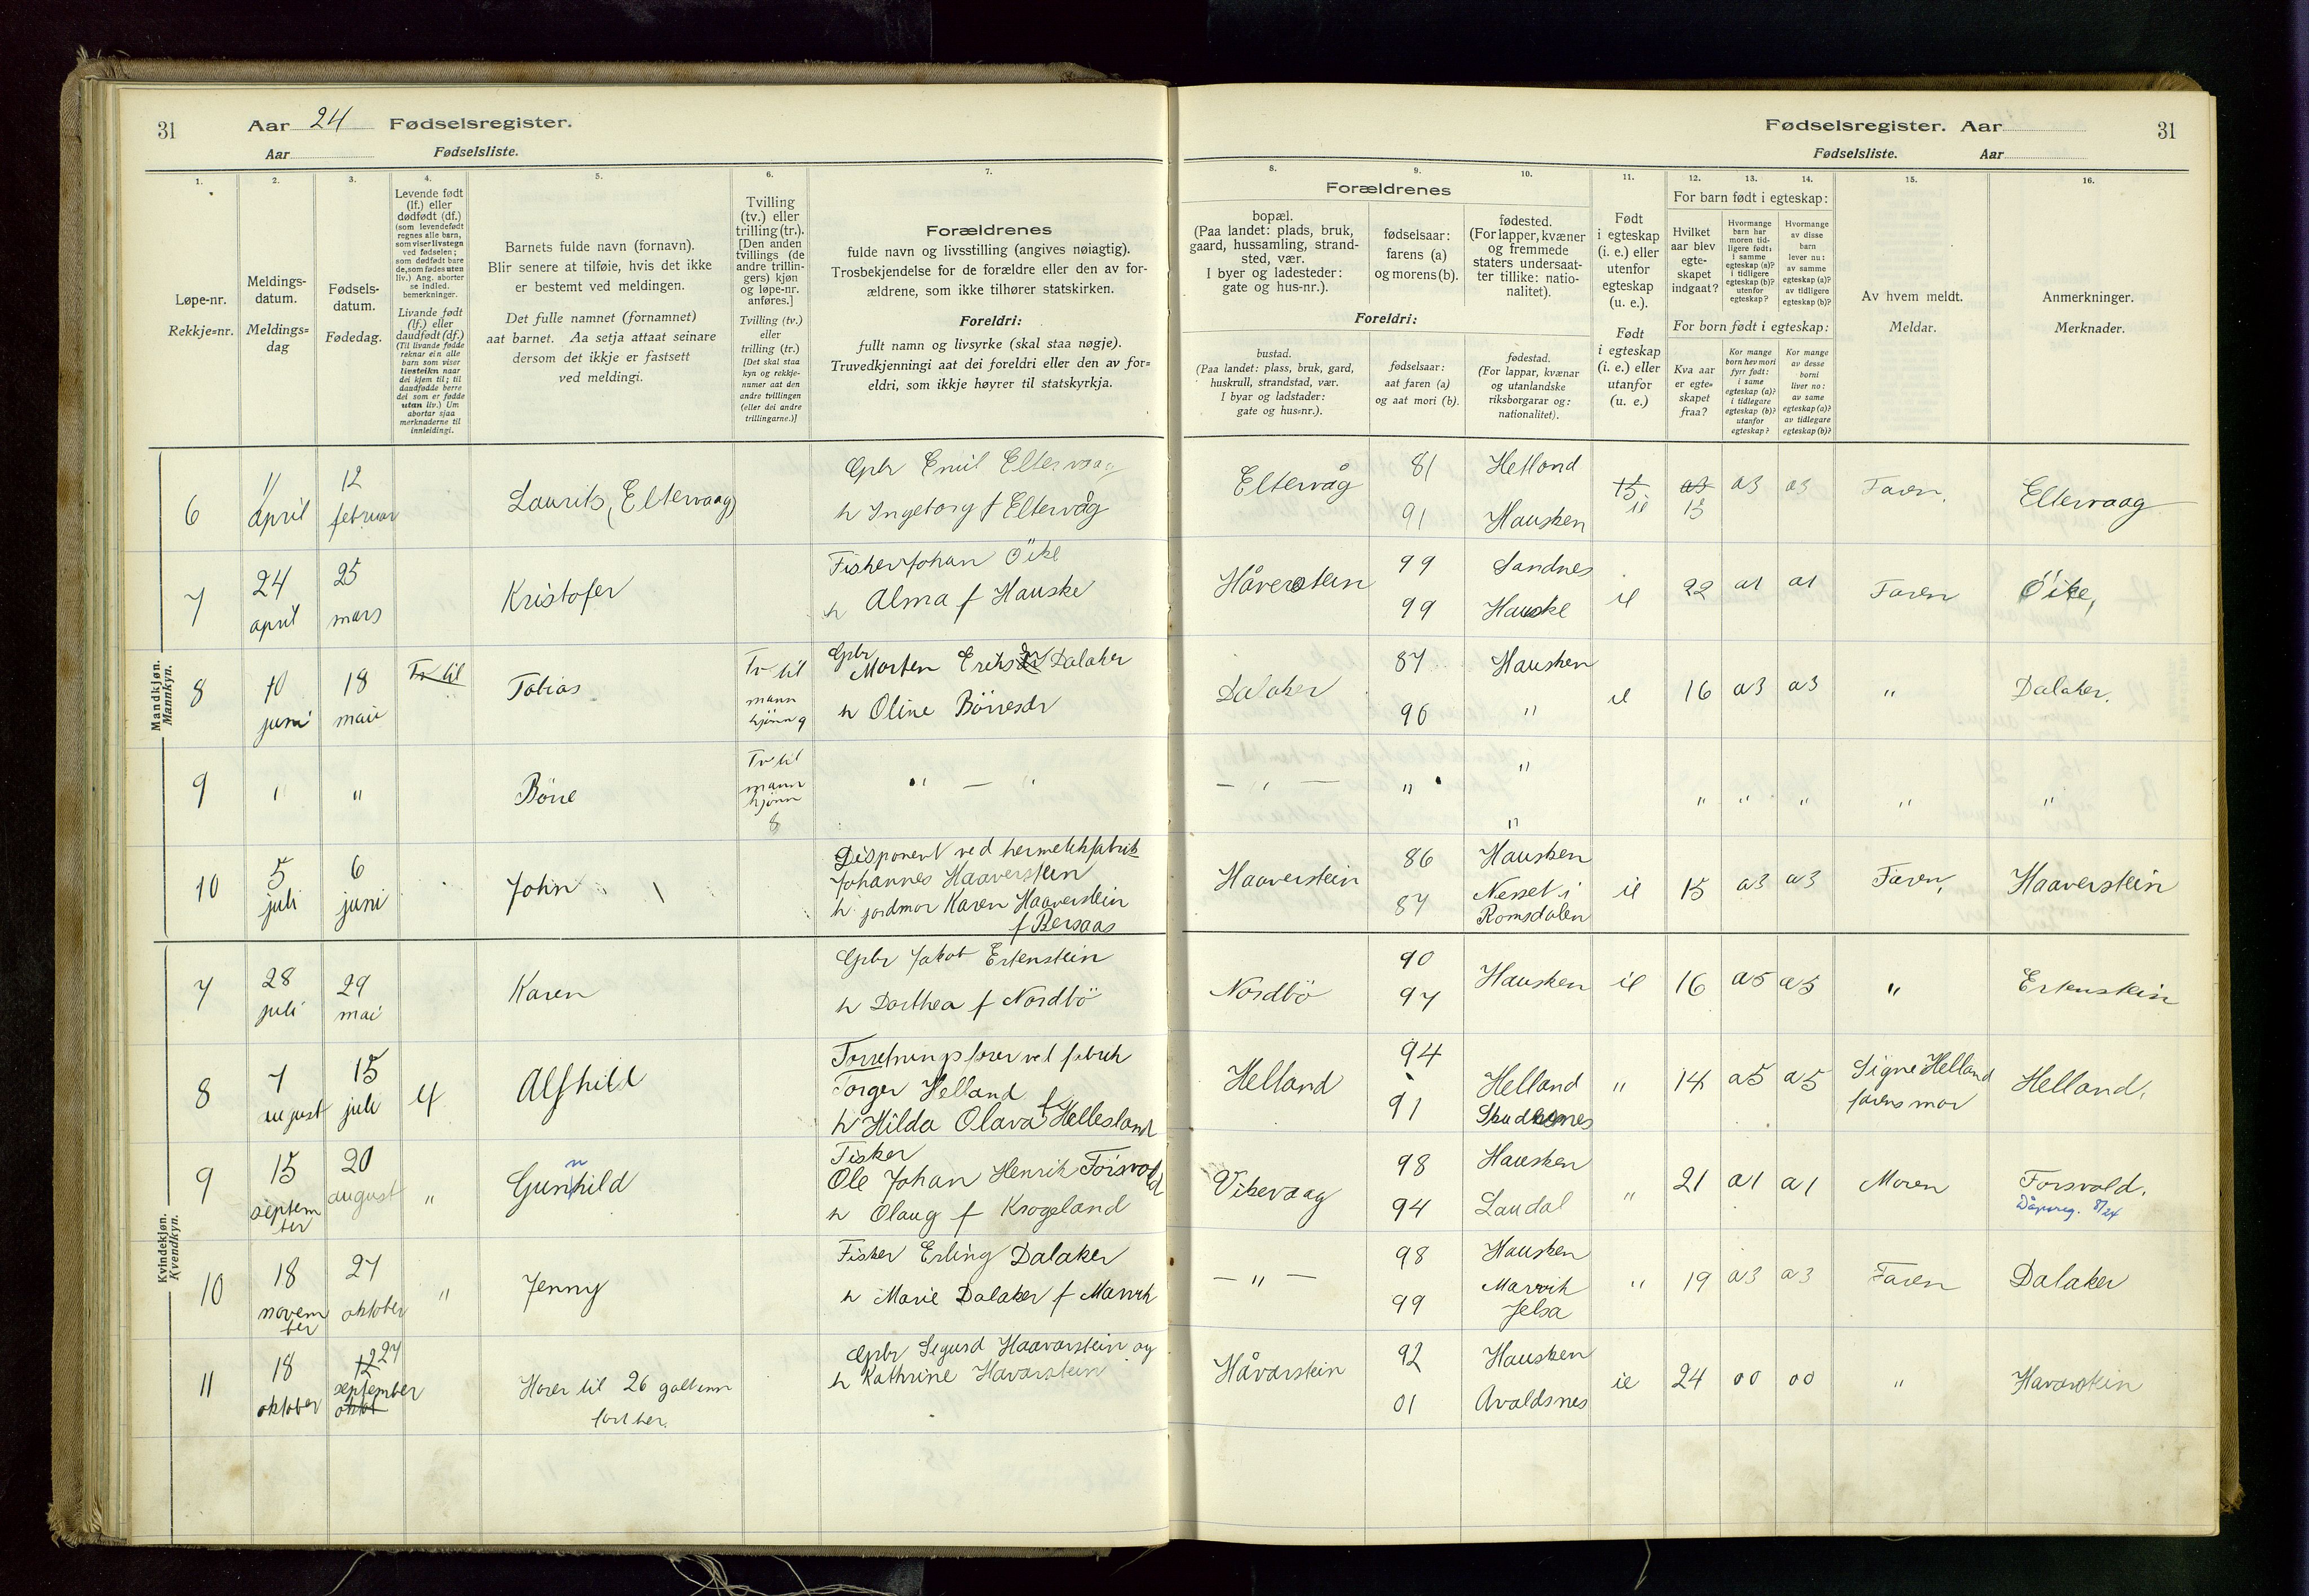 31
Aar 24 Fødselsregister.
Aar
Fødselsliste.
Fødselsregister. Aar
31
Fødselsliste.
Aar
1.
2.
3.
4.
5.
6.
7.
Løpe-nr.
Rekkje=nr.
Meldings-
datum.
Meldings=
dag
Fødsels-
datum.
Fødedag.
Levende født
(lf.) eller
dødfødt (df.)
(som levendefødt
regnes alle barn,
som viser livstegn
ved fødselen;
som dødfødt bare
de, som fødes uten
liv.) Ang. aborter
se indled.
bemerkninger.
Livande født
(lf.) eller
daudfødt (df.)
(Til livande fødde
reknar ein alle
barn som viser
livsteikn naar
dei kjem til; til
daudfødde berre
dei som er fødde
utan liv.) Um
abortar sjaa
merknaderne til
innleidingi.
Barnets fulde navn (fornavn).
Blir senere at tilføie, hvis det ikke
er bestemt ved meldingen.
Det fulle namnet (fornamnet)
aat barnet. Aa setja attaat seinare
dersom det ikkje er fastsett
ved meldingi.
Tvilling
(tv.) eller
trilling (tr.).
[Den anden
tvillings (de
andre trillin-
gers) kjøn
og løpe-nr.
anføres.]
Tvilling (tv.)
eller
trilling (tr.)
[Det skal staa
kyn og rekkje-
numer aat den
andre tvillingen
(eller dei andre
trillingarne.)]
Forældrenes
fulde navn og livsstilling (angives nøiagtig).
Trosbekjendelse for de forældre eller den av for-
ældrene, som ikke tilhører statskirken.
Foreldri:
fullt namn og livsyrke (skal staa nøgje).
Truvedkjenningi aat dei foreldri eller den av for=
eldri, som ikkje høyrer til statskyrkja.
8.
9.
10.
11.
12.
13.
14.
15.
16.
Forældrenes
bopæl.
(Paa landet: plads, bruk,
gaard, hussamling, strand-
sted, vær.
I byer og ladesteder:
gate og hus-nr.).
fødselsaar:
farens (a)
og morens (b).
fødested.
(For lapper, kvæner
og fremmede
staters undersaat-
ter tillike: natio-
nalitet).
Foreldri:
bustad.
(Paa landet: plass, bruk, gard,
huskrull, strandstad, vær.
I byar og ladstader:
gate og hus=nr.).
fødselsaar:
aat faren (a)
og aat mori (b).
fødestad.
(For lappar, kvænar
og utanlandske
riksborgarar og:
nationalitet).
Født
i egteskap
(i. e.) eller
utenfor
egteskap
(u. e.).
Født
i egteskap
(i. e.) eller
utanfor
(u. e.)
For barn født i egteskap:
Hvilket
aar blev
egte-
skapet
indgaat?
Hvormange
barn har
moren tid-
ligere født:
i samme
egteskap (a)?
i tidligere
egteskap (b)?
utenfor
egteskap?
Hvormange
av disse
barn
lever nu:
av samme
egteskap (a)?
av tidligere
egteskap (b)?
For born født i egteskap:
Kva aar
er egte=
skapet
fraa?
Kor mange
born hev mori
fyrr født:
i same
egteskap (a)?
i tidlegare
egteskap (b)?
utanfor
egteskap?
Kor mange
av desse
borni
liver no:
av same
egteskap (a)?
av tidlegare
egteskap (b)?
Av hvem meldt.
Meldar.
Anmerkninger.
Merknader.
Mandkjøn.
Mannkyn.
6
11
april
12
februar
Laurits, (Eltervaag)
Gbr Emil Eltervaag
h Ingeborg f Eltervåg
Eltervåg
81
91
Hetland
Hausken
15
ie
a3
15
a3
a3
Faren.
Eltervaag
7
24
april
25
mars
Kristofer
Fisker Johan Öike
h Alma f Hauske
Håverstein
99
99
Sandnes
Hauske
ie
22
a1
a1
Faren
Öike,
8
10
juni
18
mai
Tv til
Tobias
Tv til
mann
kjönn 9
Gbr
Morten Eriksen Dalaker
h Oline Börresdr
Dalaker
87
96
Hausken
"
ie
16
a3
a3
"
Dalaker.
9
"
"
Börre
Tv til
mann
kjönn
8
" — "
— " —
"
"
"
"
"
"
"
"
10
5
juli
6
juni
John
Disponent ved hermetikfabrik
Johannes Haaverstein
h jordmor Karen Haaverstein
f Bersaas
Haaverstein
86
87
Hausken
Nesset i
Romsdalen
ie
15
a3
a3
Faren,
Haaverstein
Kvindekjøn.
Kvendkyn.
7
28
juli
29
mai
Karen
Gbr Jakob Ertenstein
h Dorthea f Nordbö
Nordbö
90
97
Hausken
ie
16
a5
a5
"
Ertenstein
8
7
august
15
juli
lf
Alfhild
Forretningsförer ved fabrik
Torger Helland
h Hilda Olava f Hellesland
Helland
94
91
Helland
Skudenes
"
14
a5
a5
Signe Helland
farens mor
Helland.
9
15
septem
ber
20
august
"
Gunnhild
Fisker
Ole Johan Henrik Forsvold
h Olaug f Krogeland
Vikevaag
98
94
Hausken
Laudal
"
21
a1
a1
Moren
Forsvold.
Dåpsreg. 8/24
10
18
novem
ber
27
oktober
"
Jenny
Fisker Erling Dalaker
h Marie Dalaker f Marvik
— " —
98
99
Hausken
Marvik
Jelsa
"
19
a3
a3
Faren
Dalaker
11
18
oktober
12 27
september
oktob
Hörer til 26
Gbr Sigurd Haavarstein og
h Kathrine Havarstein
Håvarstein
92
01
Hausken
Avaldsnes
ie
24
00
00
"
Havarstein